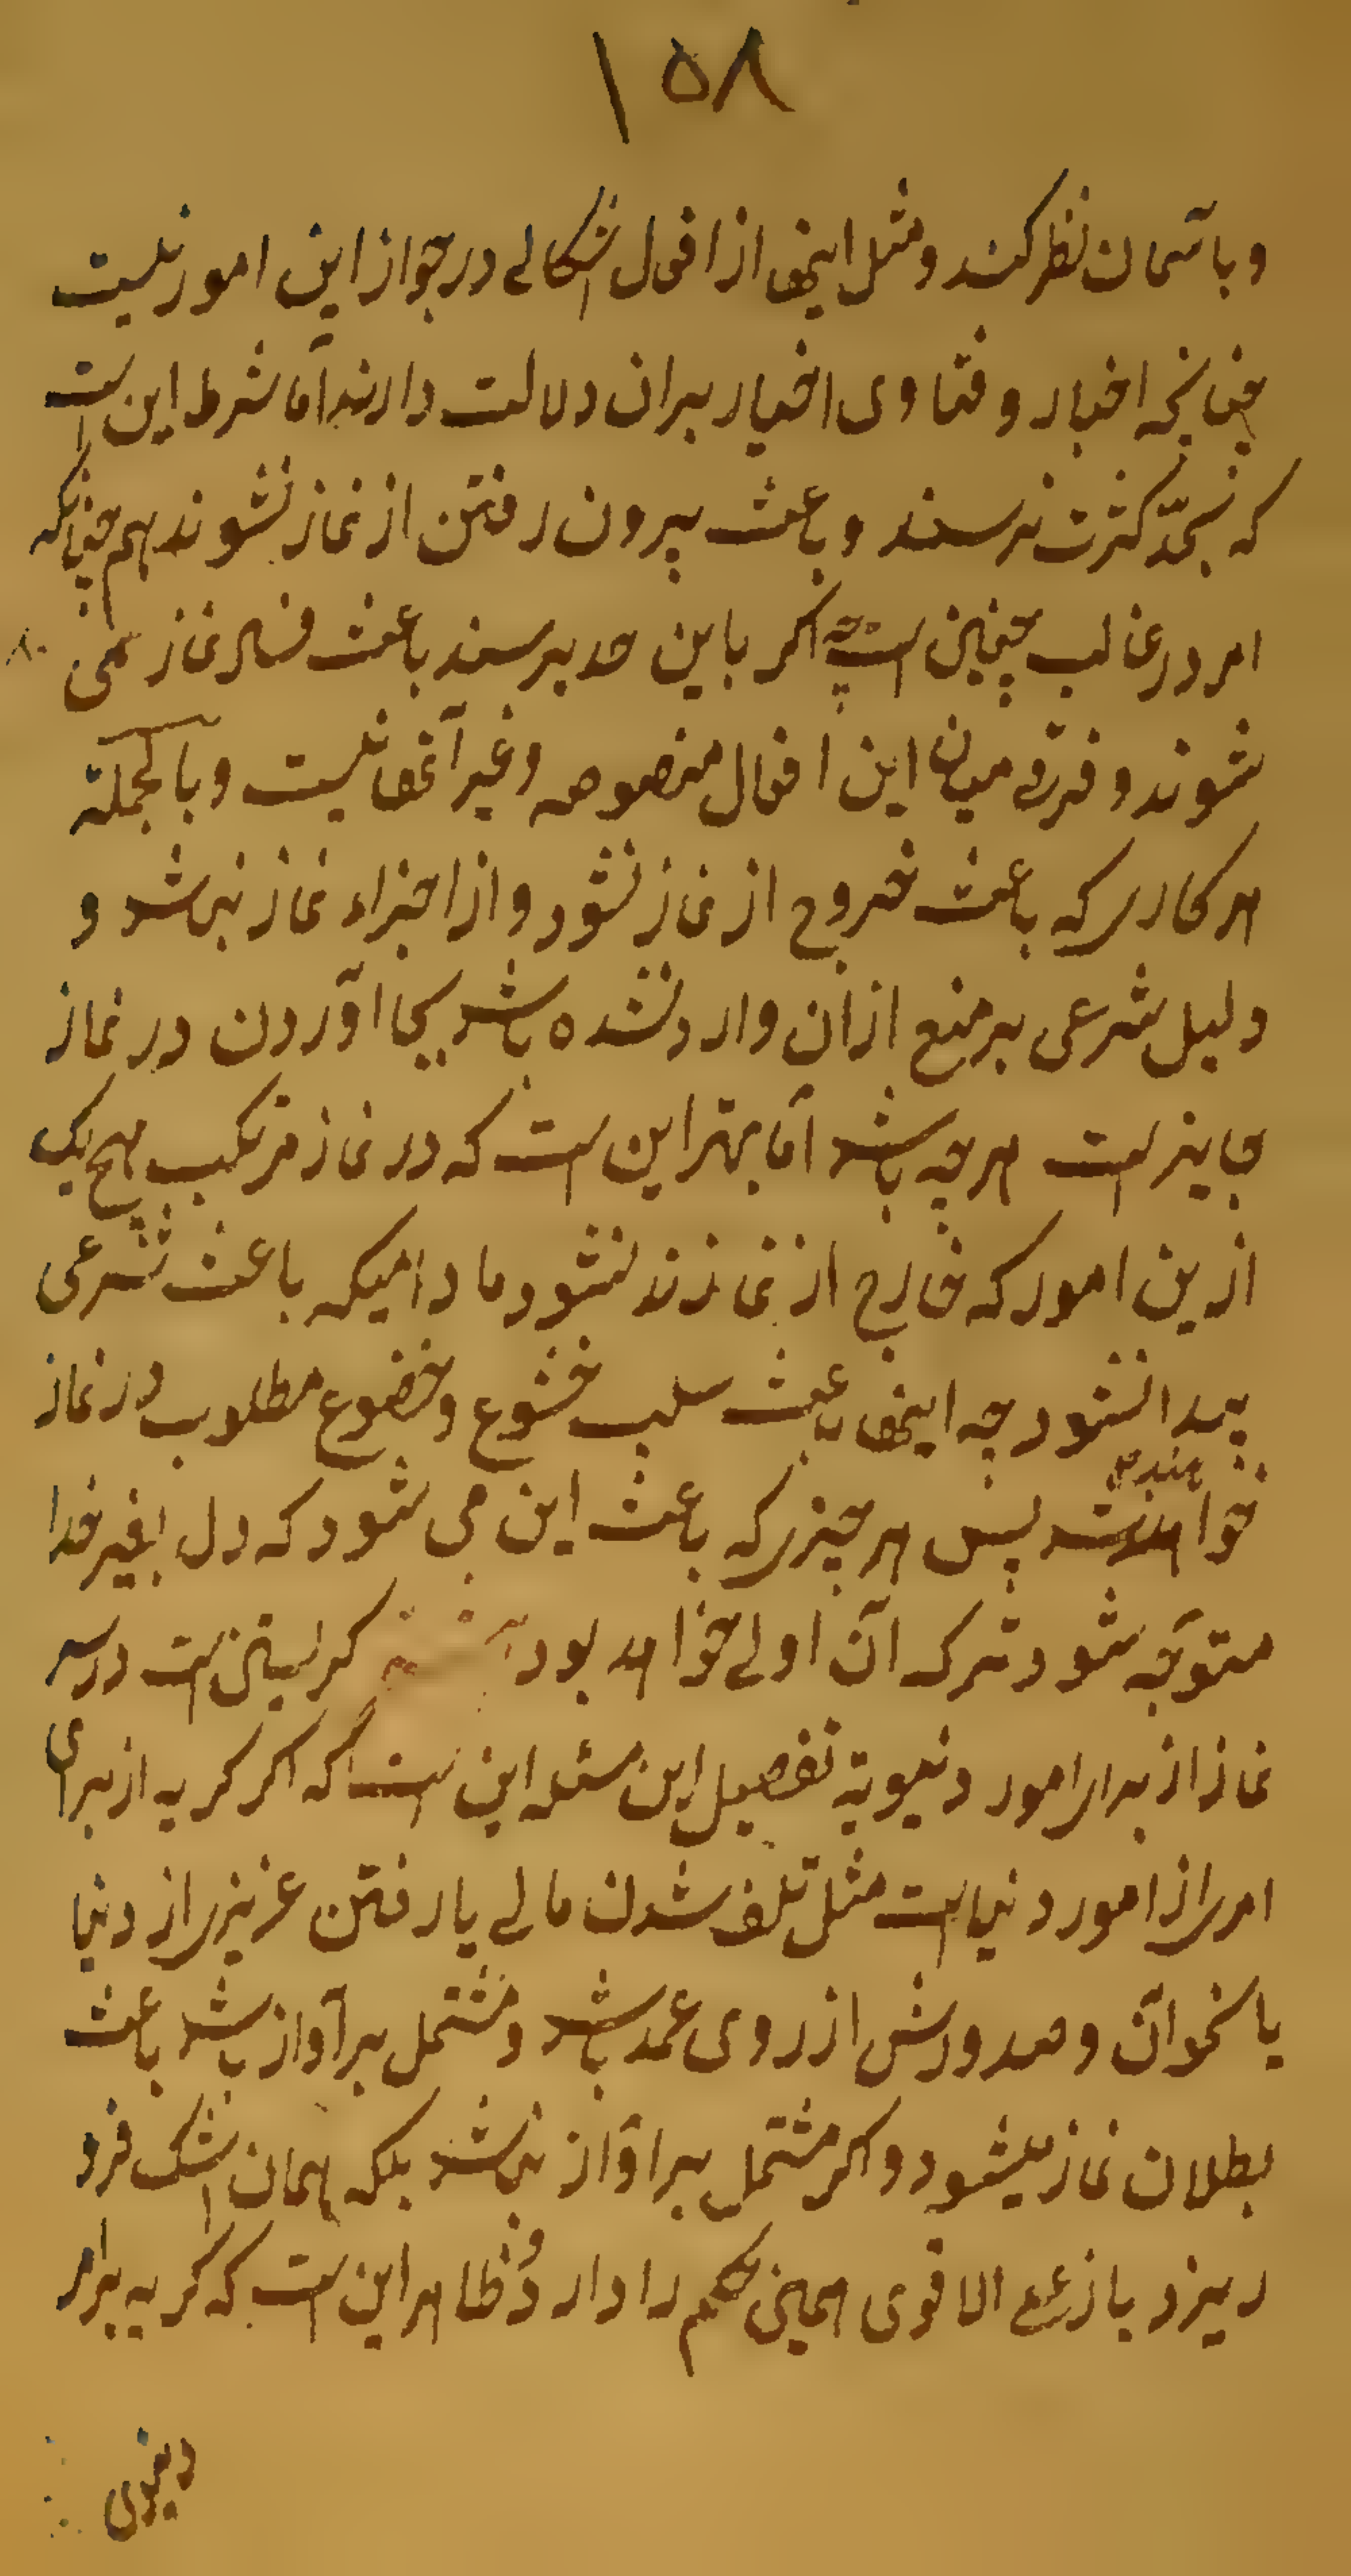 ۱۵۸
و باسمان نظر کند و مثل اینها از افعال اشکالے در جواز این امور نیست
چنانچه اخبار و فتاوی اخیار بران دلالت دارند امّا شرط این ست
که بحدّ کثرت نرسند و باعث بیرون رفتن از نماز نشوند هم چنانکه
امر در غالب چنین است چه اکر باین حد برسند باعث فساد نماز می
شوند و فرقے میان این افعال منصوصه و غیر آنها نیست و بالجملة
هر کاری که باعث خروج از نماز نشود و از اجزاء نماز نباشد و
دلیل شرعی بر منع ازان وارد نشده باشد بجا اوردن در نماز
جایز است هر چه باشد امّا بهتر این ست که در نماز مرتکب هیچ یک
ازین امور که خارج از نمازند نشود مادامیکه باعث شرعی
پیدا نشود چه اینها باعث سلب خشوع و خضوع مطلوب در نماز
خواهند شد پس هر چیزی که باعث این می شود که دل بغیر خدا
متوجّه شود ترک آن اولے خواهد بود کریستن ست در
نماز از برای امور دنیویة تفصیل این مسئله این ست که اکر کریه از برای
امری از امور دنیا است مثل تلف شدن مالے یا رفتن عزیزی از دنیا
یا نحو آن و صدورش از روی عمد باشد و مشتمل بر آواز باشد باعث
بطلان نماز میشود و اکر مشتمل بر اواز نباشد بلکه همان اشک فرو
ریزد باز علے الاقوی همین حکم را دارد و ظاهر این ست که کریه بر امر
دنیوی